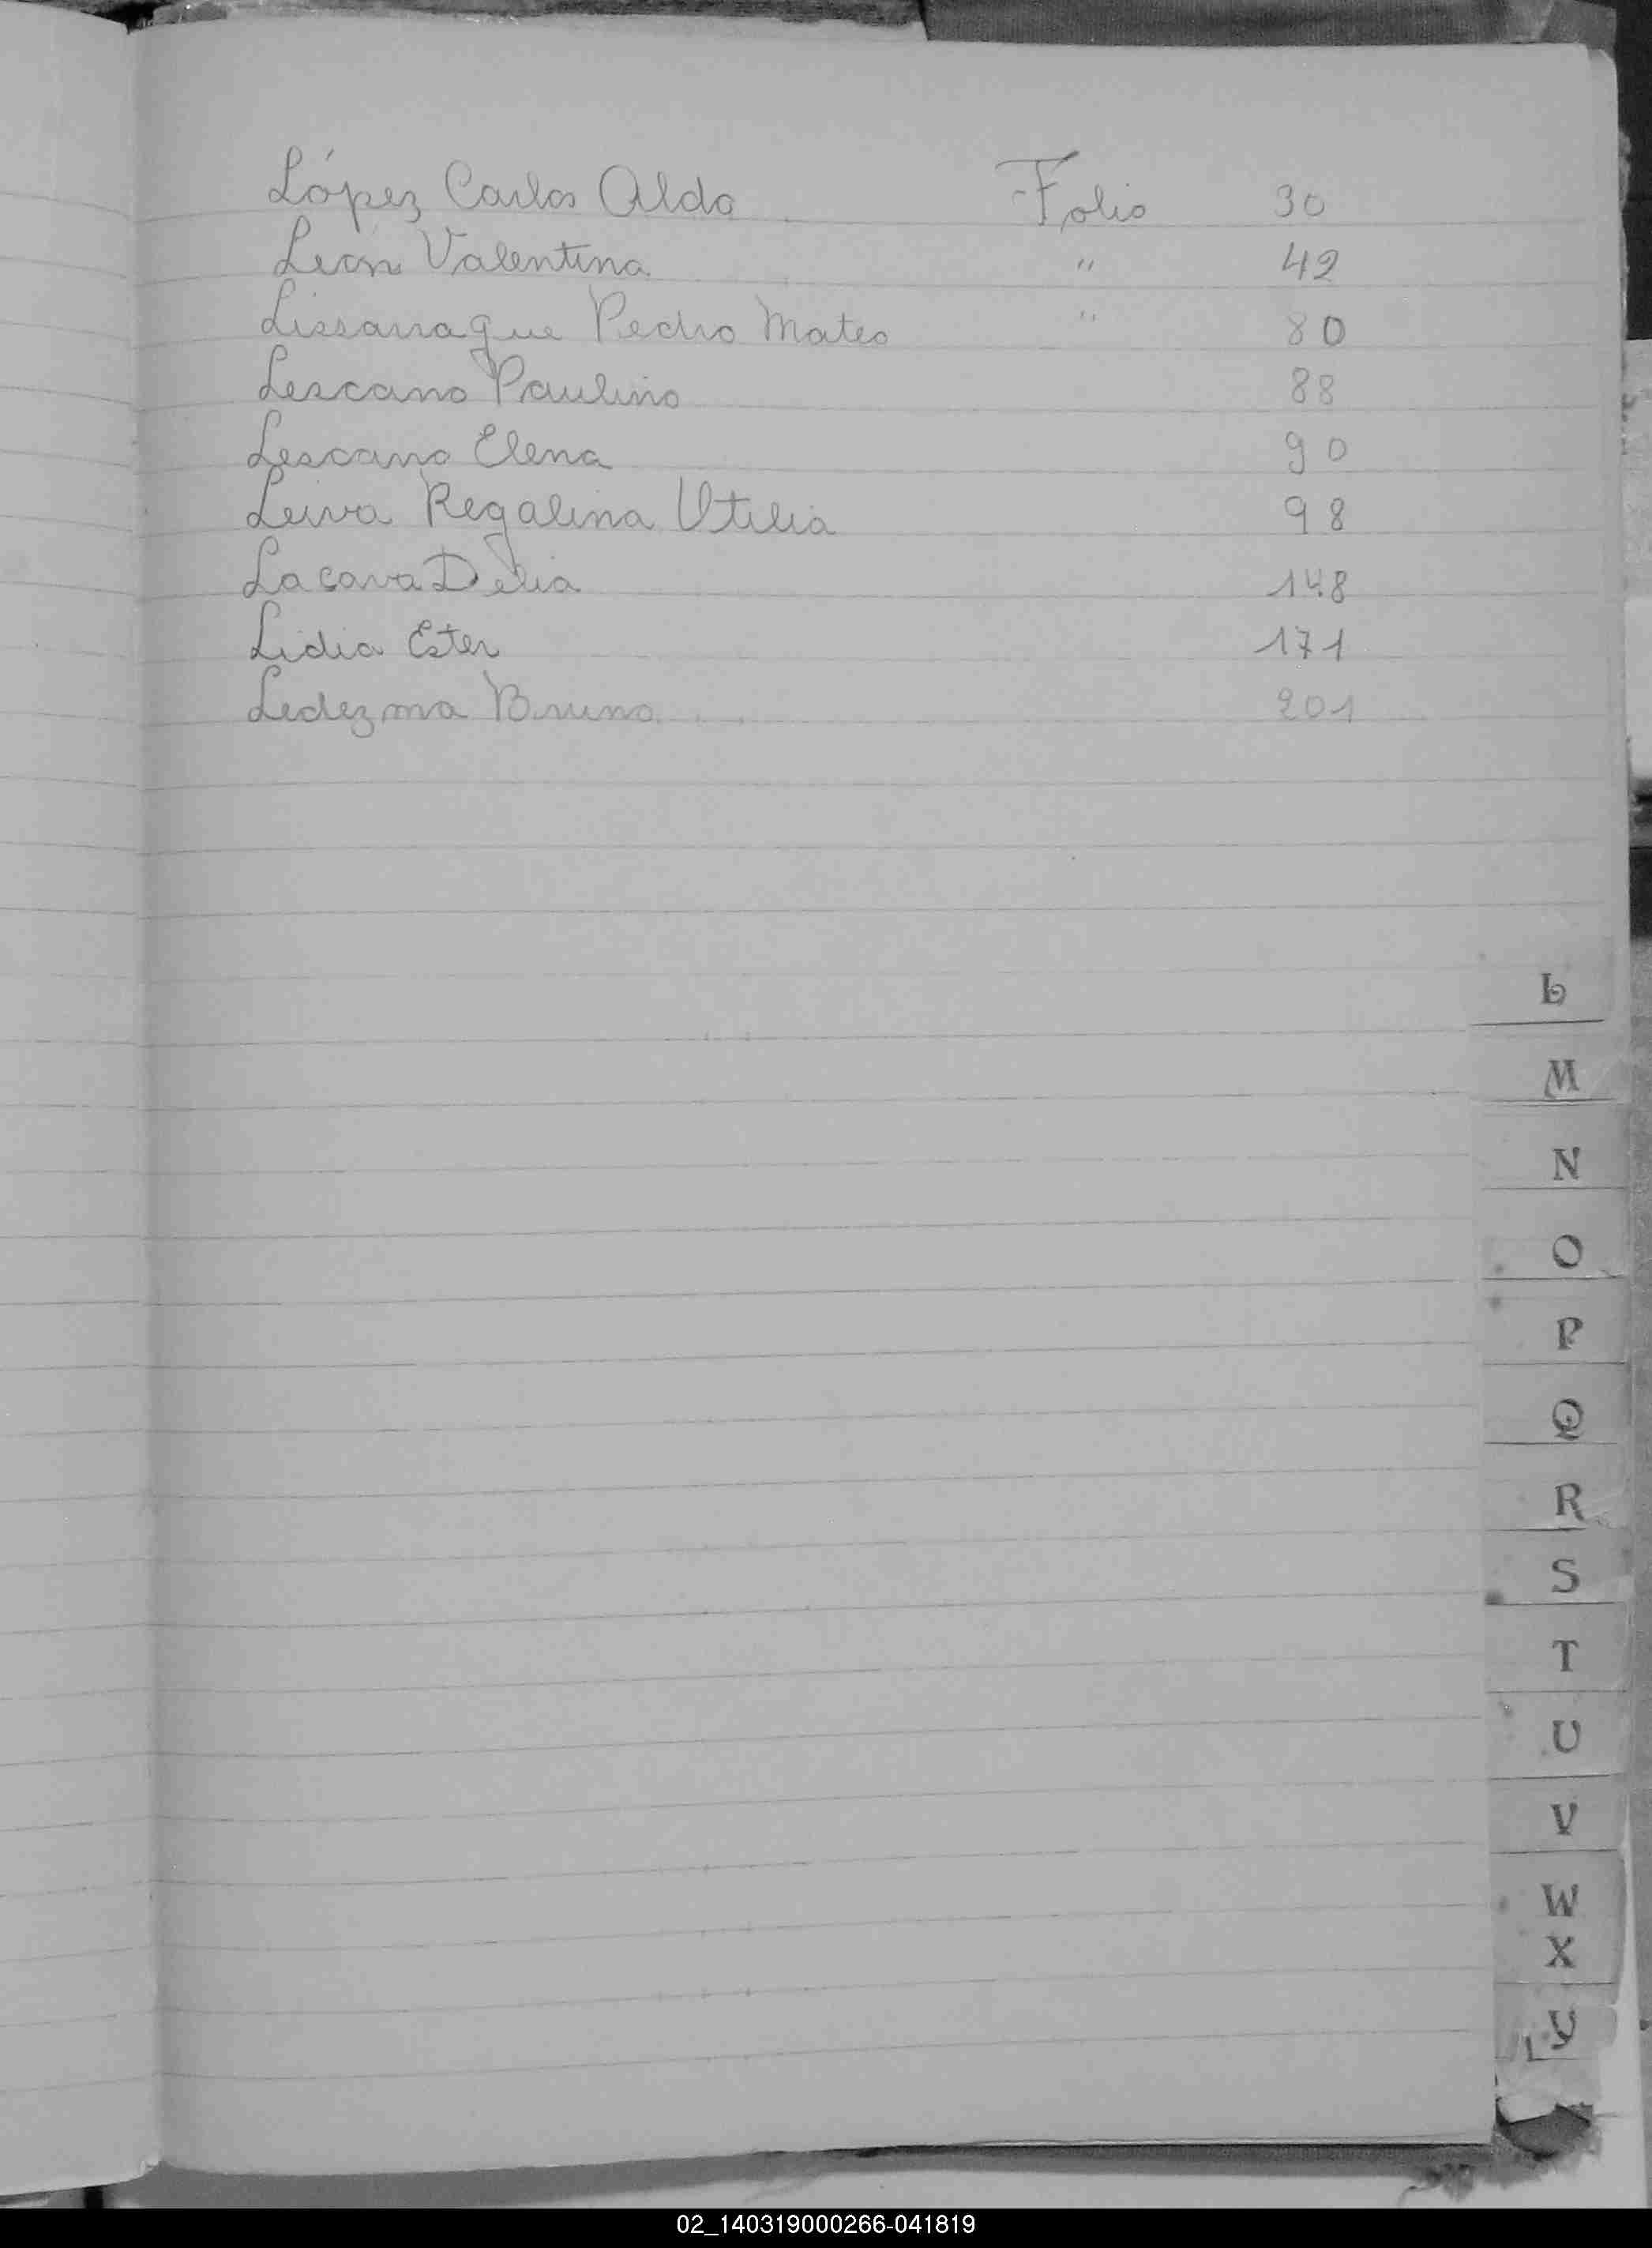 López Carlos Aldo Folio 30
León Valentina " 42
Lissarrague Pedro Mateo " 80
Lescano Paulino 88
Lescano Elena 90
Leiva Regalina Utilia 98
Lacava Delia 148
Lidia Ester 171
Ledezma Bruno 201
L
M
N
O
P
Q
R
S
T
U
V
W
X
Y
02_140319000266-041819